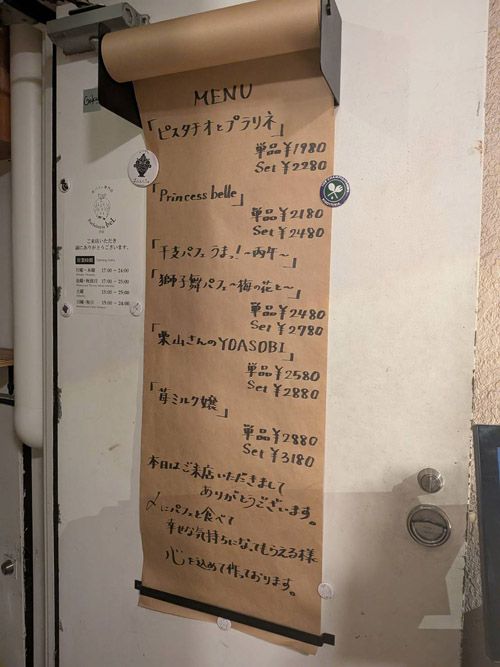 MENU
「ピスタチオとプラリネ」
単品¥1980
Set ¥2280
「Princess belle」
単品¥2180
Set ¥2480
「干支パフェうまっ!〜丙午〜」
「獅子舞パフェ〜梅の花と〜」
単品¥2480
Set ¥2780
「栗山さんのYOASOBI」
単品¥2580
Set ¥2880
「苺ミルク嬢」
単品¥2880
Set ¥3180
本日はご来店いただきまして
ありがとうございます。
〆にパフェを食べて
幸せな気持ちになってもらえる様
心を込めて作っております。
ご来店いただき
誠にありがとうございます。
営業時間
17:00 ~ 24:00